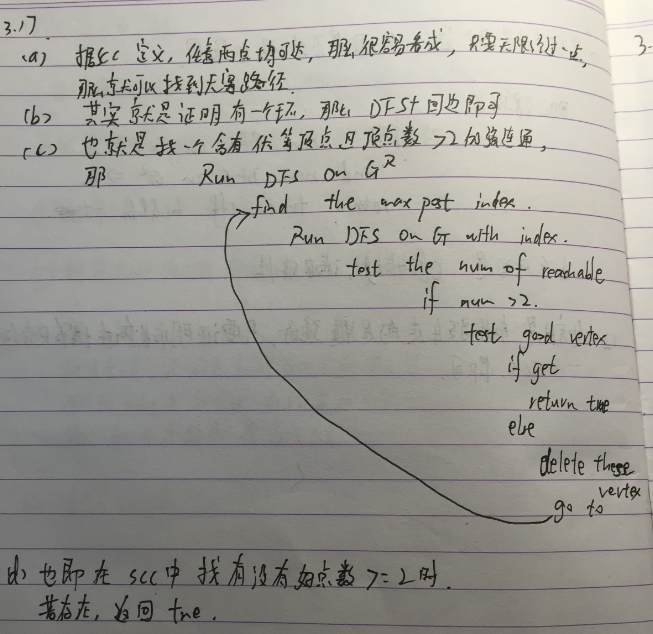 3.17
(a) 据SCC 定义，任意两点均可达，那么很容易看成，只要无限经过一点，
那么就可以找到无穷路径.
(b) 其实就是证明有一个环，那么 DFS+回边即可
(c) 也就是找一个含有优等顶点且顶点数 >2 的强连通，
那 Run DFS on G^R
find the max post index.
Run DFS on G with index.
test the num of reachable
if num >2.
test good vertex
if get
return true
else
delete these
vertex
go to
d) 也即在 scc中找有没有点数 >=2时.
若存在，返回 true.
3.